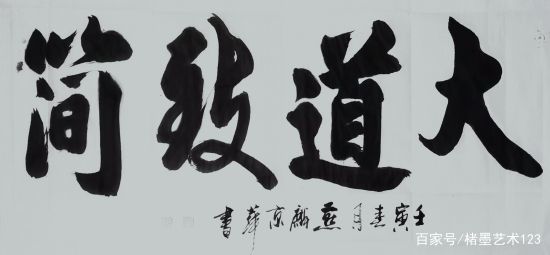 大道致简
壬寅春月燕麟京華書
百家号/楮墨艺术123